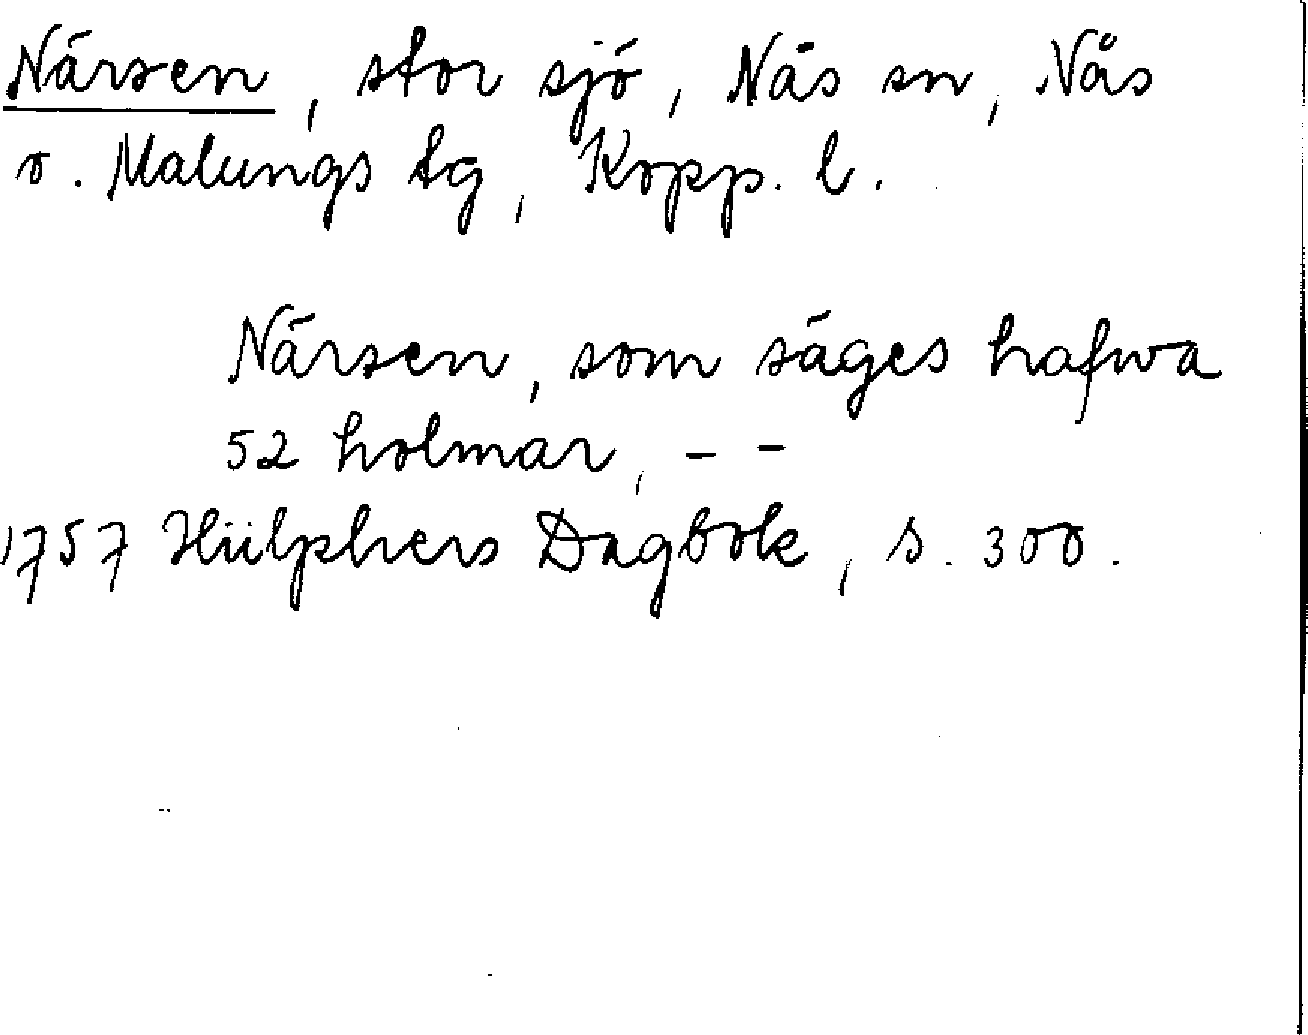 Närsen, stor sjö, Nås sn, Nås
o. Malungs tg, Kopp. l.
Närsen, som säges hafwa
52 holmar, - -
1757 Hülphers Dagbok, s. 300.